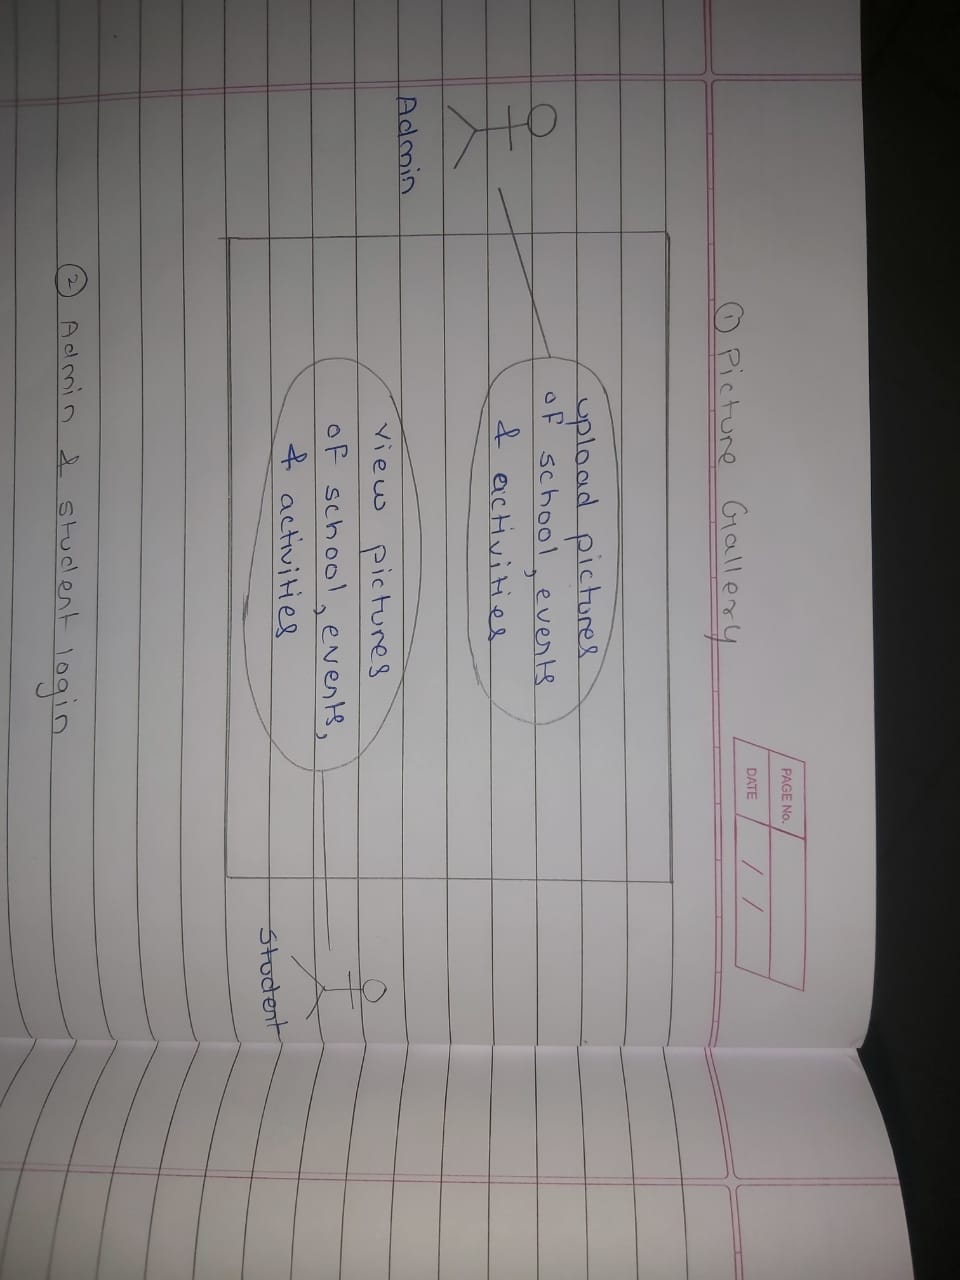 PAGE No.
DATE / /
① Picture Gallery
Admin
upload pictures
of school, events
& activities
view pictures
of school, events,
& activities
Student
② Admin & student login